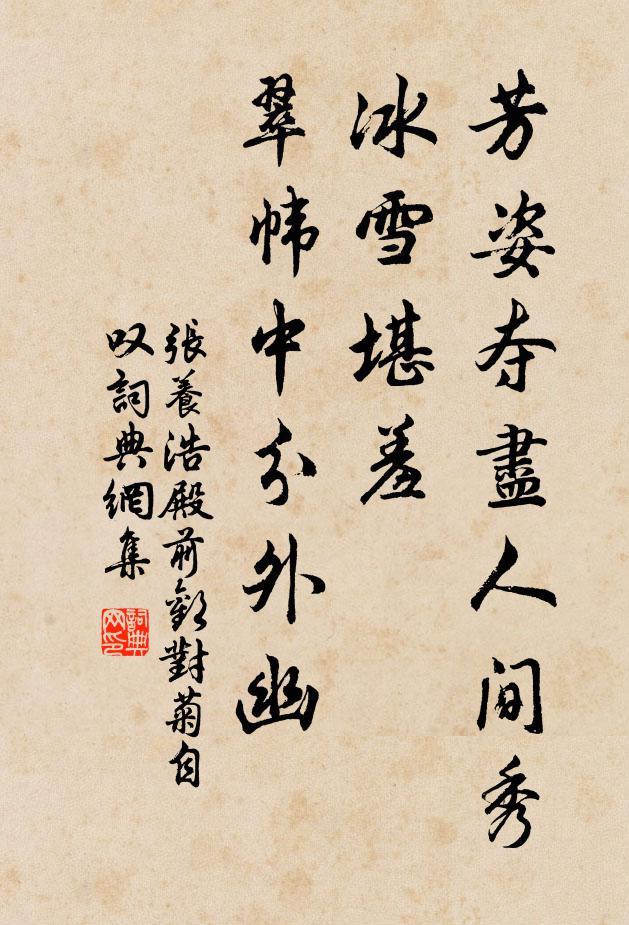 芳姿夺盡人間秀
冰雪堪羞
翠幃中分外幽
張養浩殿前歡對菊自
叹詞典網集
詞典网印